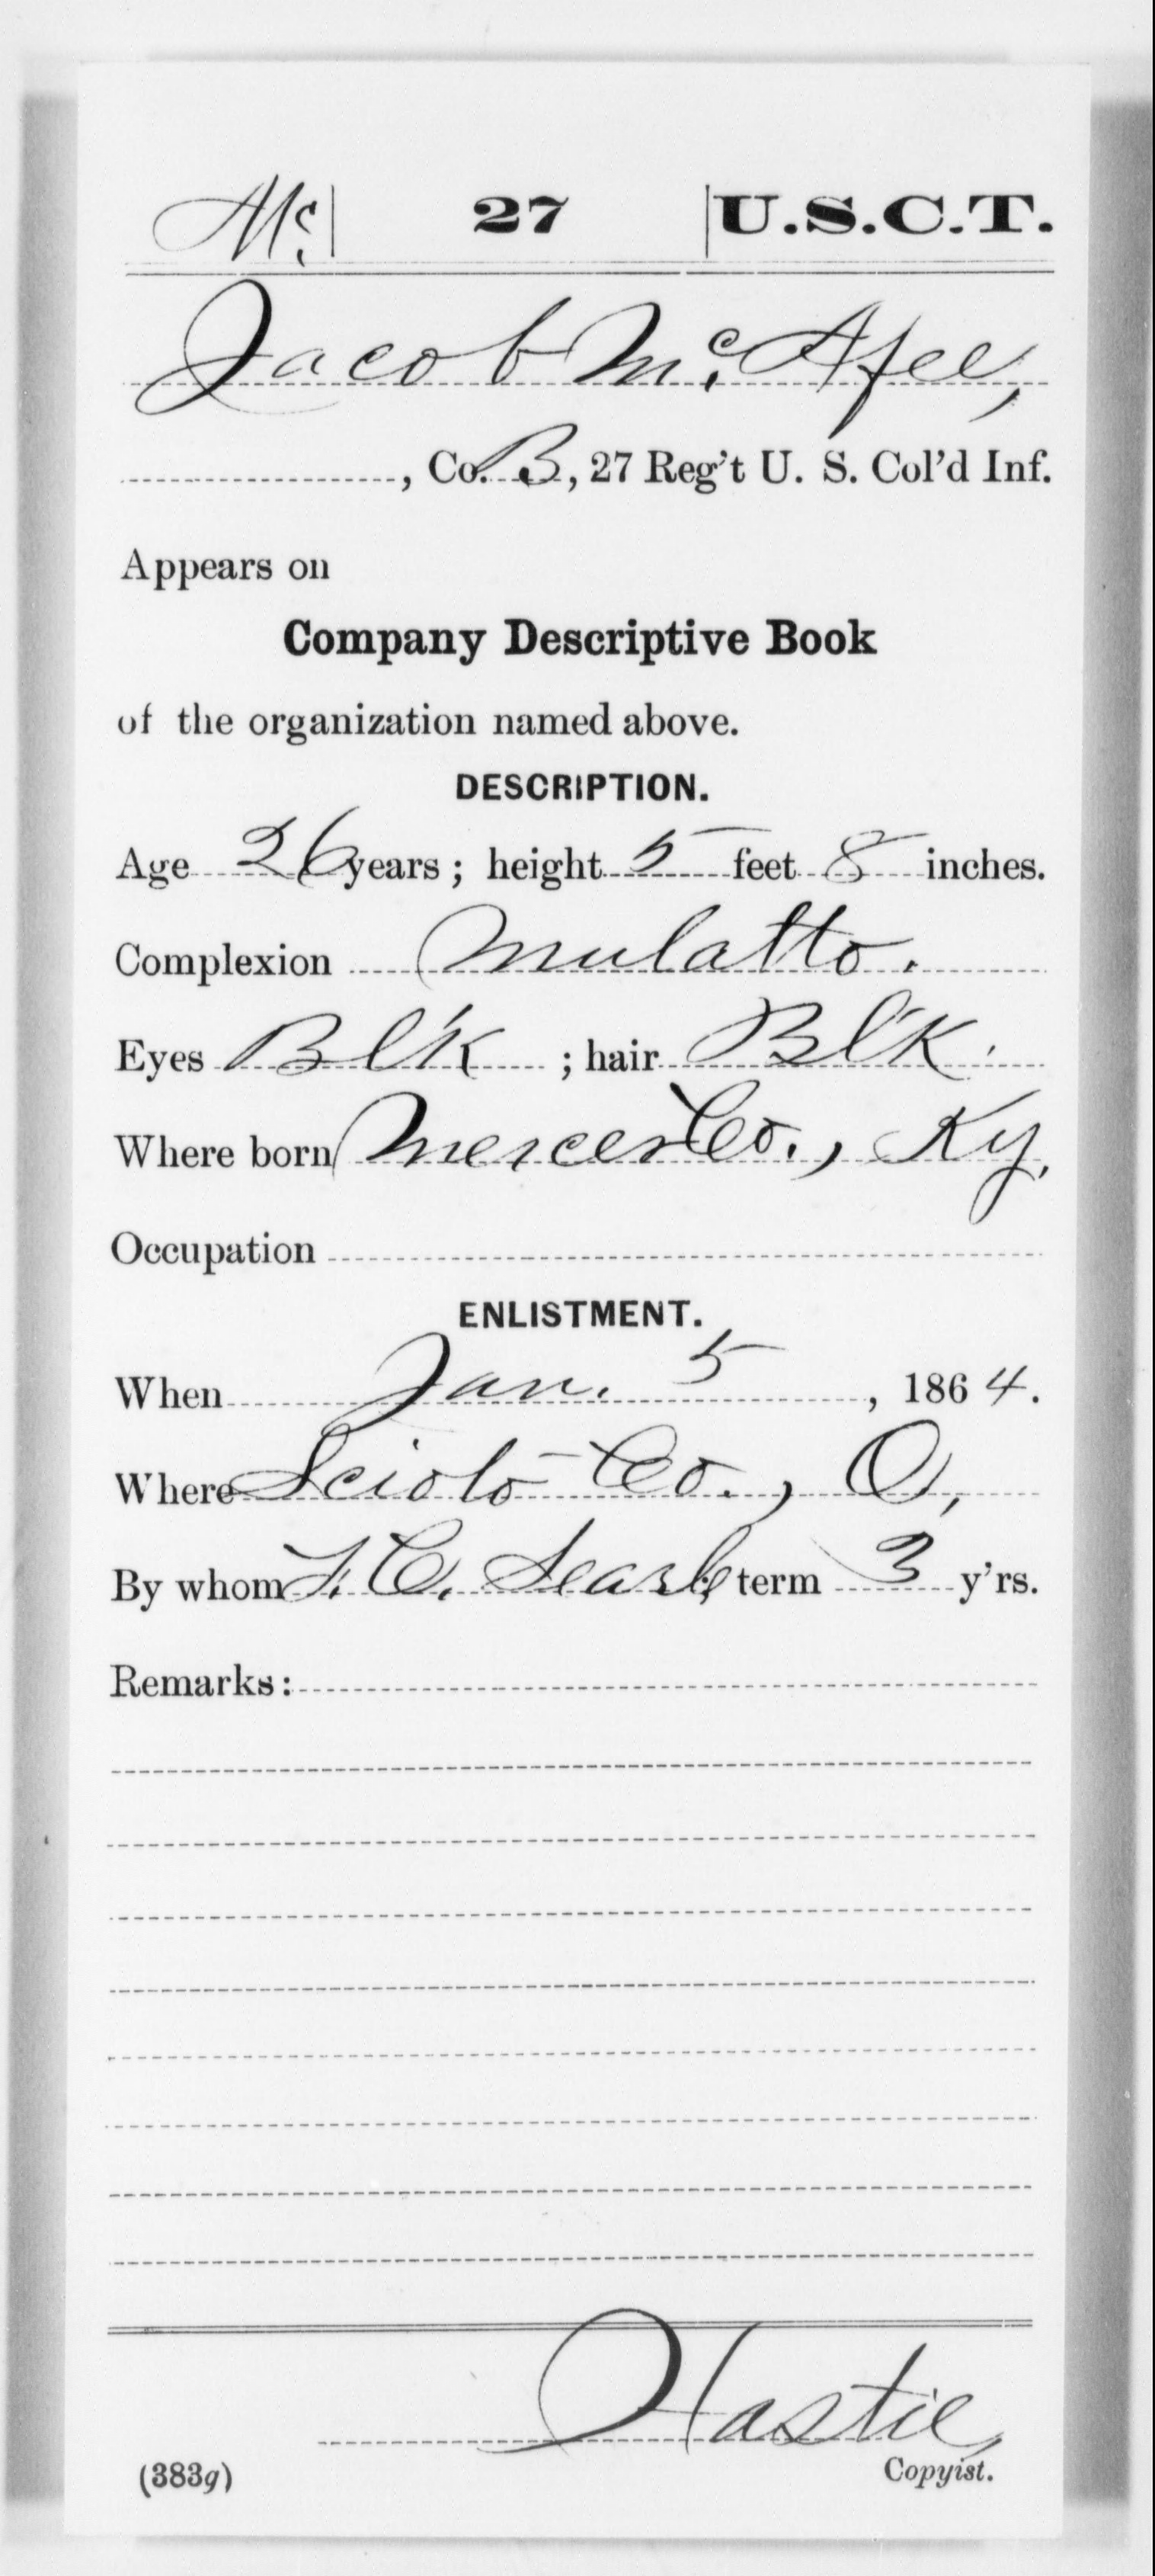 Mc | 27 | U.S.C.T.
Jacob McAfee,
, Co. B, 27 Reg't U. S. Col'd Inf.
Appears on
Company Descriptive Book
of the organization named above.
DESCRIPTION.
Age 26 years; height 5 feet 8 inches.
Complexion Mulatto.
Eyes Bl'k; hair Bl'k.
Where born Mercer Co., Ky,
Occupation
ENLISTMENT.
When Jan. 5, 1864.
Where Scioto Co., O,
By whom C. Searl; term 3 y'rs.
Remarks:
Hastie,
(383g) Copyist.